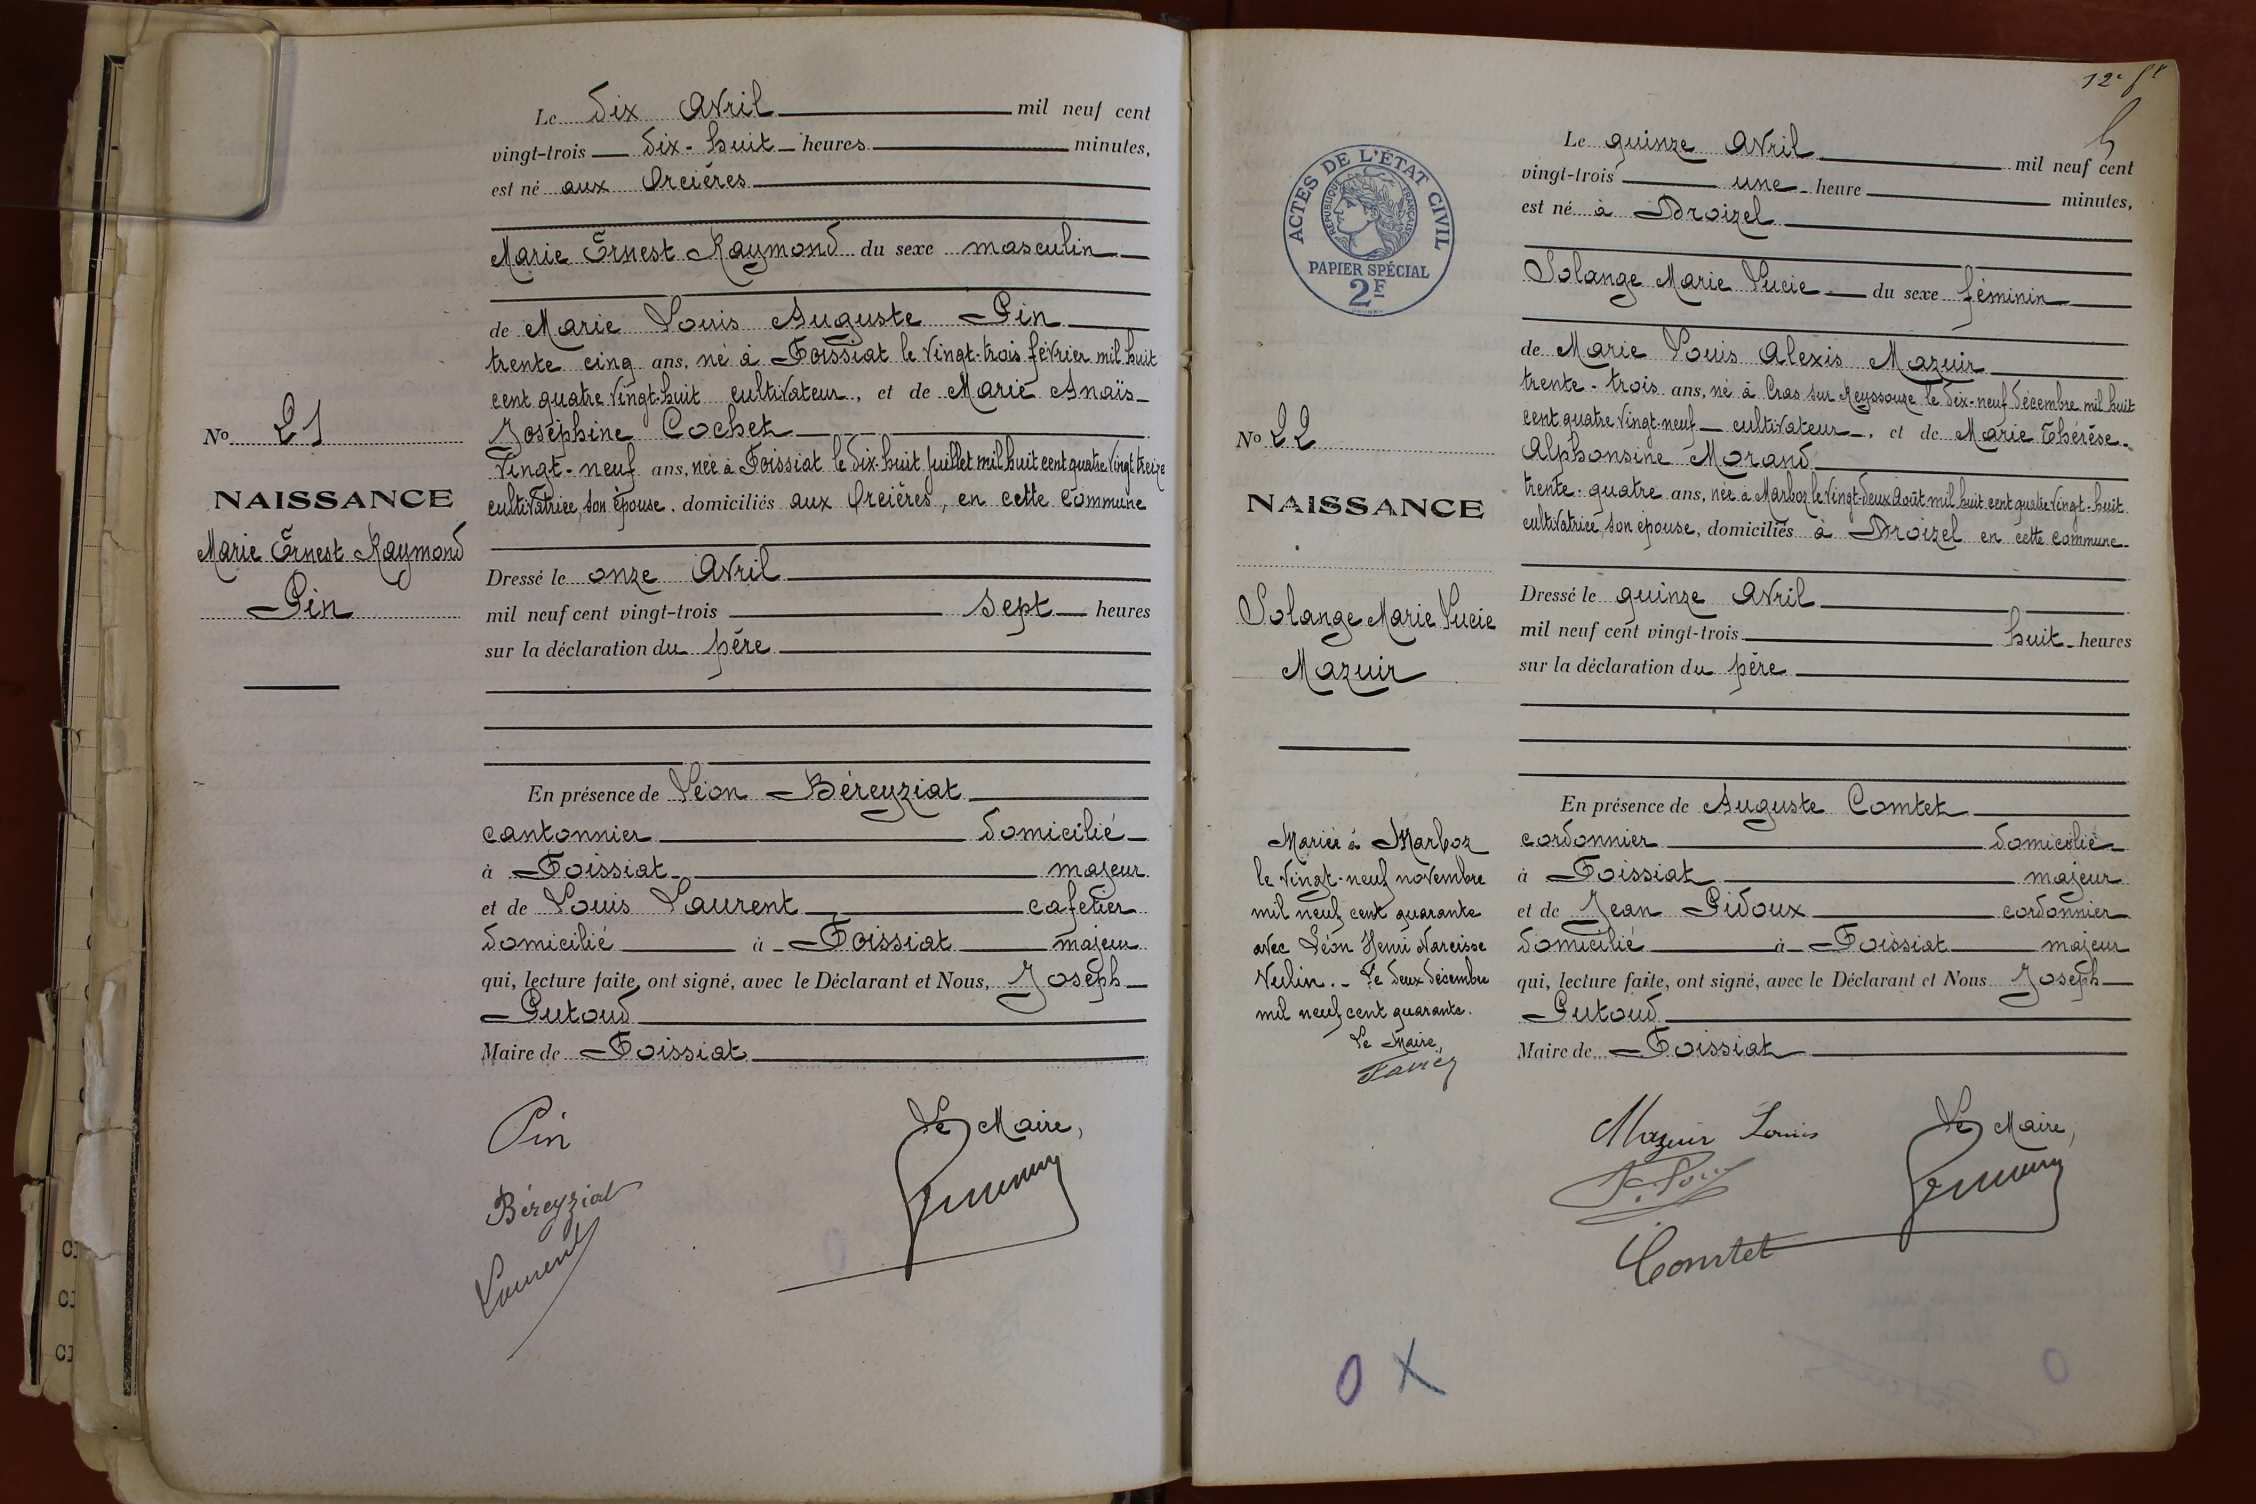 Le dix Avril mil neuf cent
vingt-trois dix-huit heures minutes,
est né aux Orcières
Marie Ernest Raymond du sexe masculin
de Marie Louis Auguste Pin
trente cinq ans, né à Foissiat le vingt-trois février mil huit
cent quatre vingt-huit cultivateur, et de Marie Anaïs
Joséphine Cochet
vingt-neuf ans, née à Foissiat le dix-huit Juillet mil huit cent quatre vingt treize
cultivatrice, son épouse, domiciliés aux Orcières, en cette commune
Dressé le onze Avril
mil neuf cent vingt-trois sept heures
sur la déclaration du père
En présence de Léon Béreyziat
cantonnier domicilié
à Foissiat majeur
et de Louis Laurent cafetier
domicilié à Foissiat majeur
qui, lecture faite, ont signé, avec le Déclarant et Nous, Joseph
Putoud
Maire de Foissiat
No 21
NAISSANCE
Marie Ernest Raymond
Pin
Pin
Le Maire,
Béreyziat
Laurent
12e
Le quinze Avril mil neuf cent
vingt-trois une heure minutes,
est né à Droizel
Solange Marie Lucie du sexe féminin
de Marie Louis Alexis Mazuir
trente-trois ans, né à Cras sur Reyssouze le dix-neuf décembre mil huit
cent quatre vingt-neuf cultivateur, et de Marie Thérèse
Alphonsine Morand
trente-quatre ans, née à Marboz le vingt-deux Août mil huit cent quatre vingt-huit
cultivatrice, son épouse, domiciliés à Droizel en cette commune
Dressé le quinze Avril
mil neuf cent vingt-trois huit heures
sur la déclaration du père
En présence de Auguste Comtet
cordonnier domicilié
à Foissiat majeur
et de Jean Pidoux cordonnier
domicilié à Foissiat majeur
qui, lecture faite, ont signé, avec le Déclarant et Nous Joseph
Putoud
Maire de Foissiat
ACTES DE L'ÉTAT CIVIL
RÉPUBLIQUE FRANÇAISE
PAPIER SPÉCIAL
2F
No 22
NAISSANCE
Solange Marie Lucie
Mazuir
Mariée à Marboz
le vingt-neuf novembre
mil neuf cent quarante
avec Léon Henri Narcisse
Neulin. - Le deux décembre
mil neuf cent quarante.
Le Maire,
Mazuir Louis
Le Maire,
Comtet
0 X